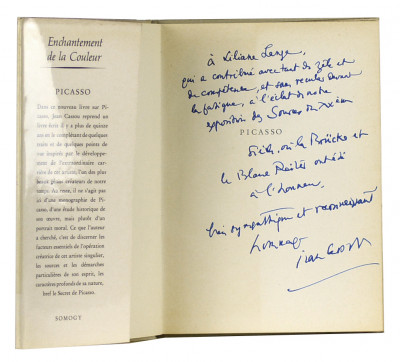 Enchantement
de la Couleur
PICASSO
Dans ce nouveau livre sur Pi-
casso, Jean Cassou reprend un
livre écrit il y a plus de quinze
ans en le complétant de quelques
mots et de quelques points de
vue inspirés par le développe-
ment de l'extraordinaire carriè-
re de cet artiste, l'un des plus
hauts créateurs de notre
temps. Au reste, il ne s'agit pas
ici d'une monographie de Pi-
casso, d'une étude historique de
son œuvre, mais plutôt d'un
portrait moral. Ce que l'auteur
a cherché, c'est de discerner les
facteurs essentiels de l'opération
créatrice de cet artiste singulier,
les sources et les démarches
particulières de son esprit, les
caractères profonds de sa nature,
bref le Secret de Picasso.
SOMOGY
à Liliane
qui a contribué avec tant de zèle et
de compétence, et sans reculer devant
la fatigue, à l'éclat de notre
exposition des Sources du XXème
PICASSO
siècle, où la et
le ont été
à l'honneur,
bien sympathique et reconnaissant
hommage
Jean Cassou